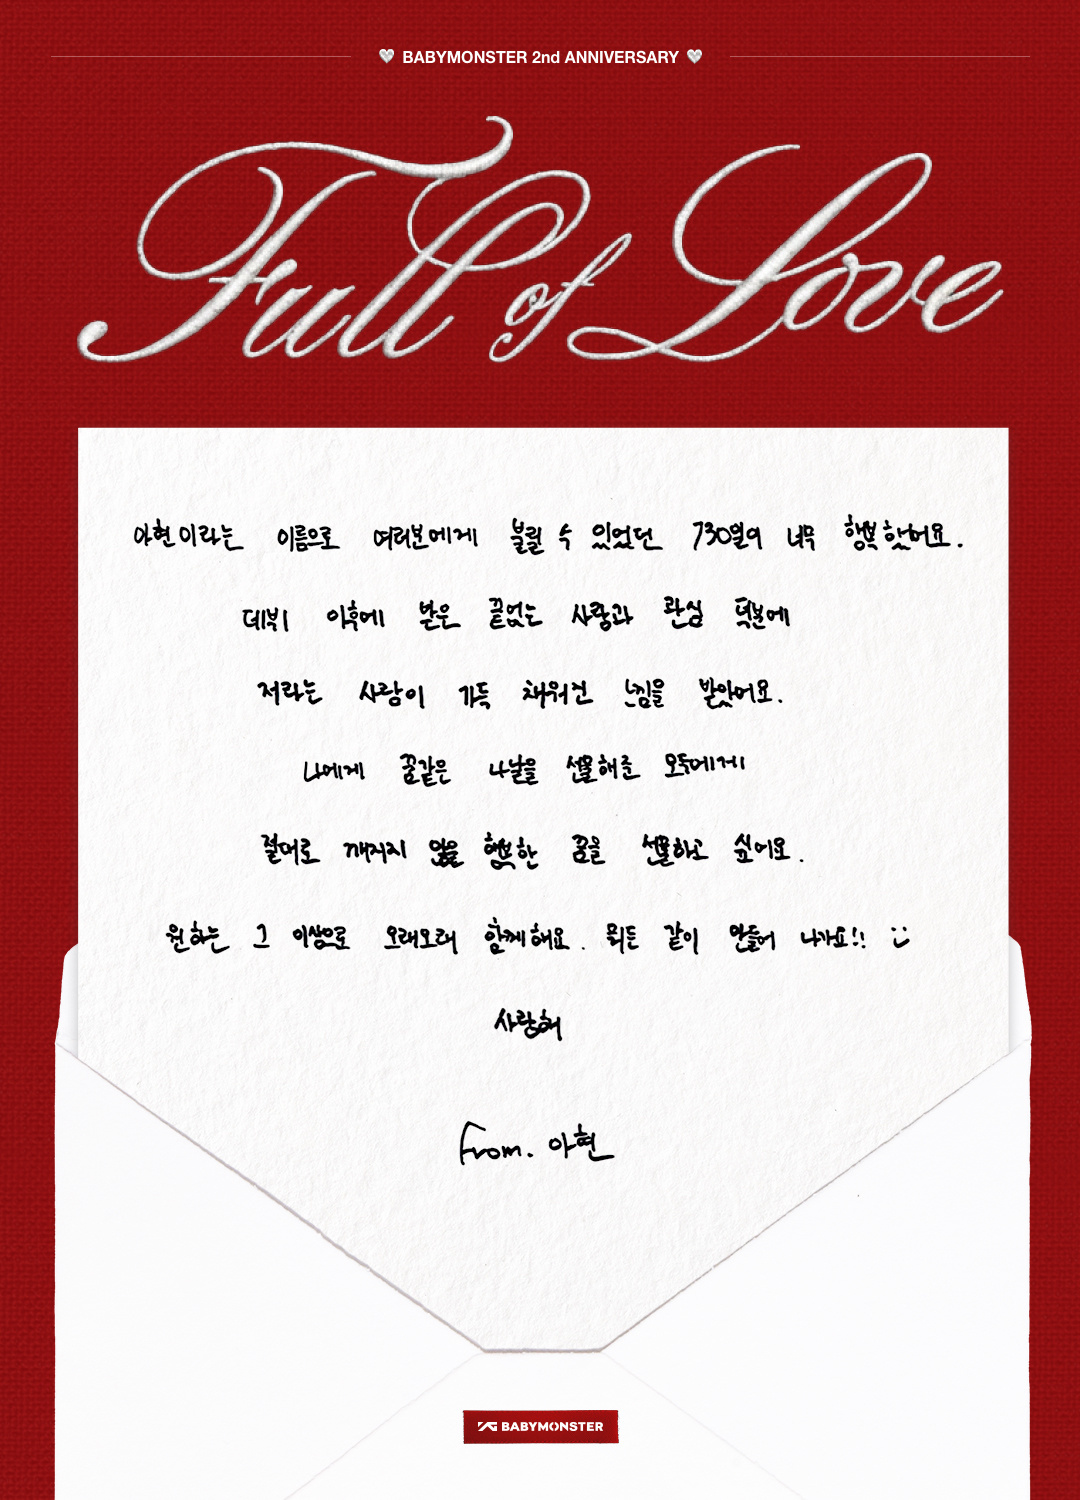 BABYMONSTER 2nd ANNIVERSARY
Full of Love
아현이라는 이름으로 여러분에게 불릴 수 있었던 730일이 너무 행복했어요.
데뷔 이후에 받은 끝없는 사랑과 관심 덕분에
저라는 사랑이 가득 채워진 느낌을 받았어요.
나에게 꿈같은 나날을 선물해준 모두에게
절대로 깨지지 않을 행복한 꿈을 선물하고 싶어요.
원하는 그 이상으로 오래오래 함께해요. 뭐든 같이 만들어 나가요!! :)
사랑해
From. 아현
YG BABYMONSTER